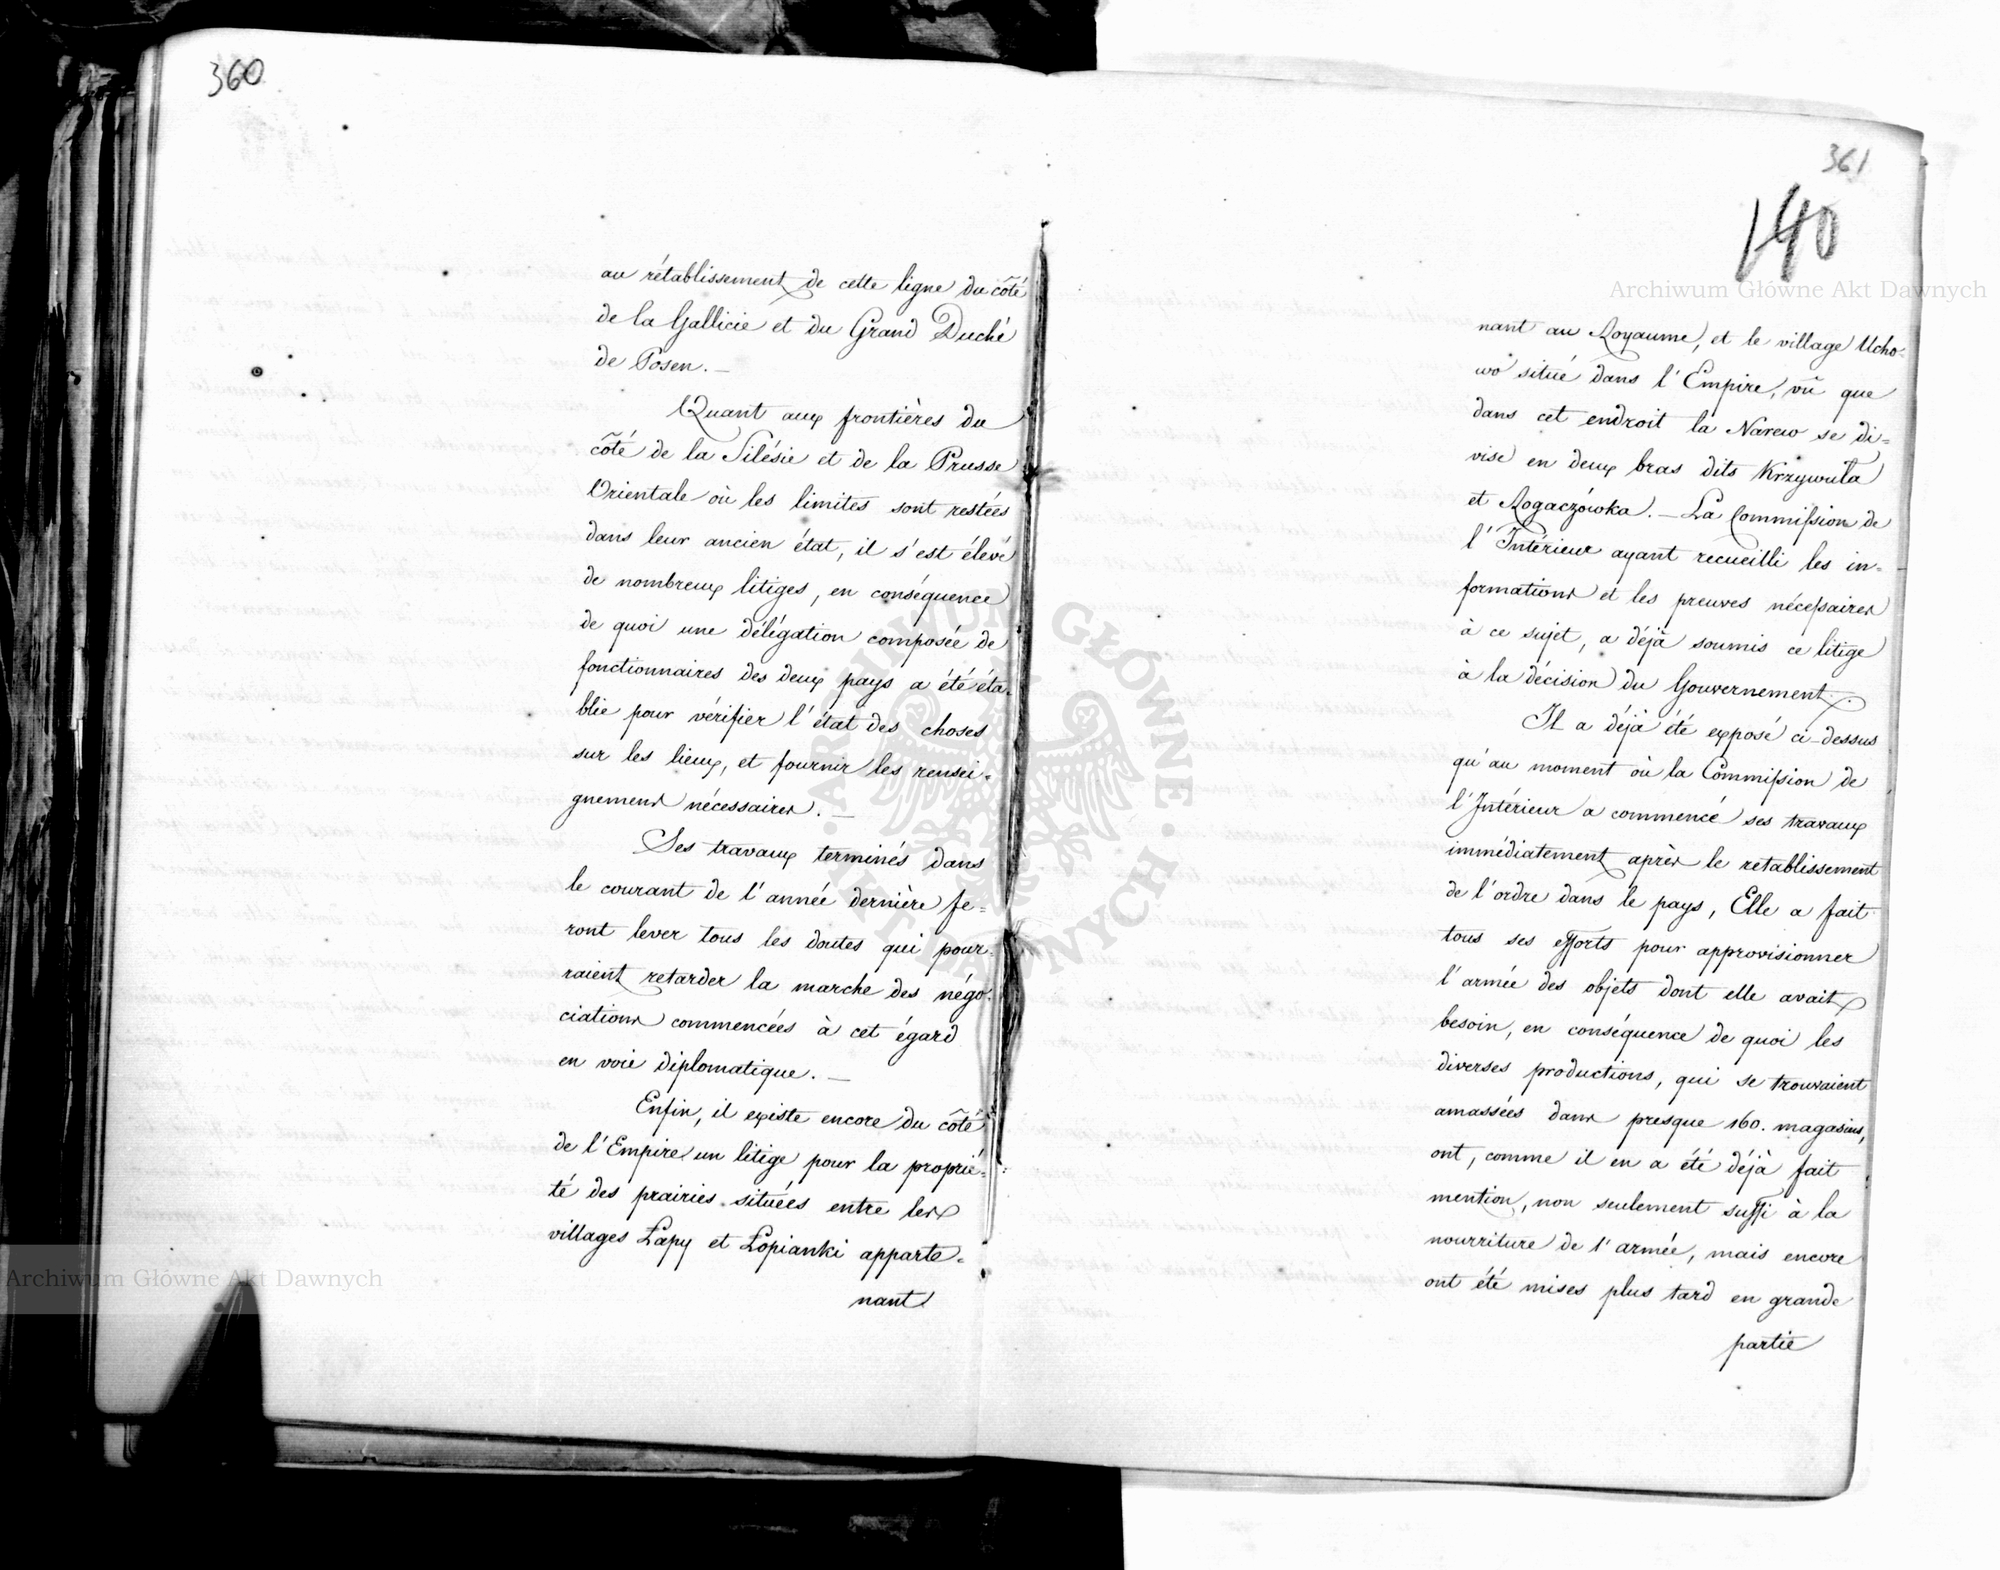 360
au rétablissement de cette ligne du côté
de la Gallicie et du Grand Duché
de Posen. —
Quant aux frontières du
côté de la Silésie et de la Prusse
Orientale où les limites sont restées
dans leur ancien état, il s'est élevé
de nombreux litiges, en conséquence
de quoi une délégation composée de
fonctionnaires des deux pays a été éta-
blie pour vérifier l'état des choses
sur les lieux, et fournir les rensei-
gnemens nécessaires. —
Ses travaux terminés dans
le courant de l'année dernière fe=
ront lever tous les doutes qui pour-
raient retarder la marche des négo-
ciations commencées à cet égard
en voie diplomatique. —
Enfin, il existe encore du côté
de l'Empire un litige pour la proprié-
té des prairies situées entre les
villages Łapy et Łopianki apparte-
nant
361
140
nant au Royaume, et le village Ucho-
wo situé dans l'Empire, vû que
dans cet endroit la Narew se di=
vise en deux bras dits Krzywula
et Rogaczówka. — La Commission de
l'Intérieur ayant recueilli les in-
formations et les preuves nécessaires
à ce sujet, a déjà soumis ce litige
à la décision du Gouvernement.
Il a déjà été exposé ci-dessus
qu'au moment où la Commission de
l'Intérieur a commencé ses travaux
immédiatement après le retablissement
de l'ordre dans le pays, Elle a fait
tous ses efforts pour approvisionner
l'armée des objets dont elle avait
besoin, en conséquence de quoi les
diverses productions, qui se trouvaient
amassées dans presque 160. magasins,
ont, comme il en a été déjà fait
mention, non seulement suffi à la
nourriture de l'armée, mais encore
ont été mises plus tard en grande
partie
Archiwum Główne Akt Dawnych
Archiwum Główne Akt Dawnych
ARCHIWUM GŁÓWNE AKT DAWNYCH